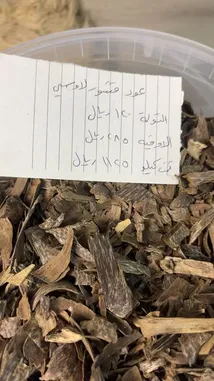 عود قشور لاوسي
التوله ١٢٠ ريال
الاوقيه ٢٨٥ ريال
ثمن كيلو ١١٢٥ ريال